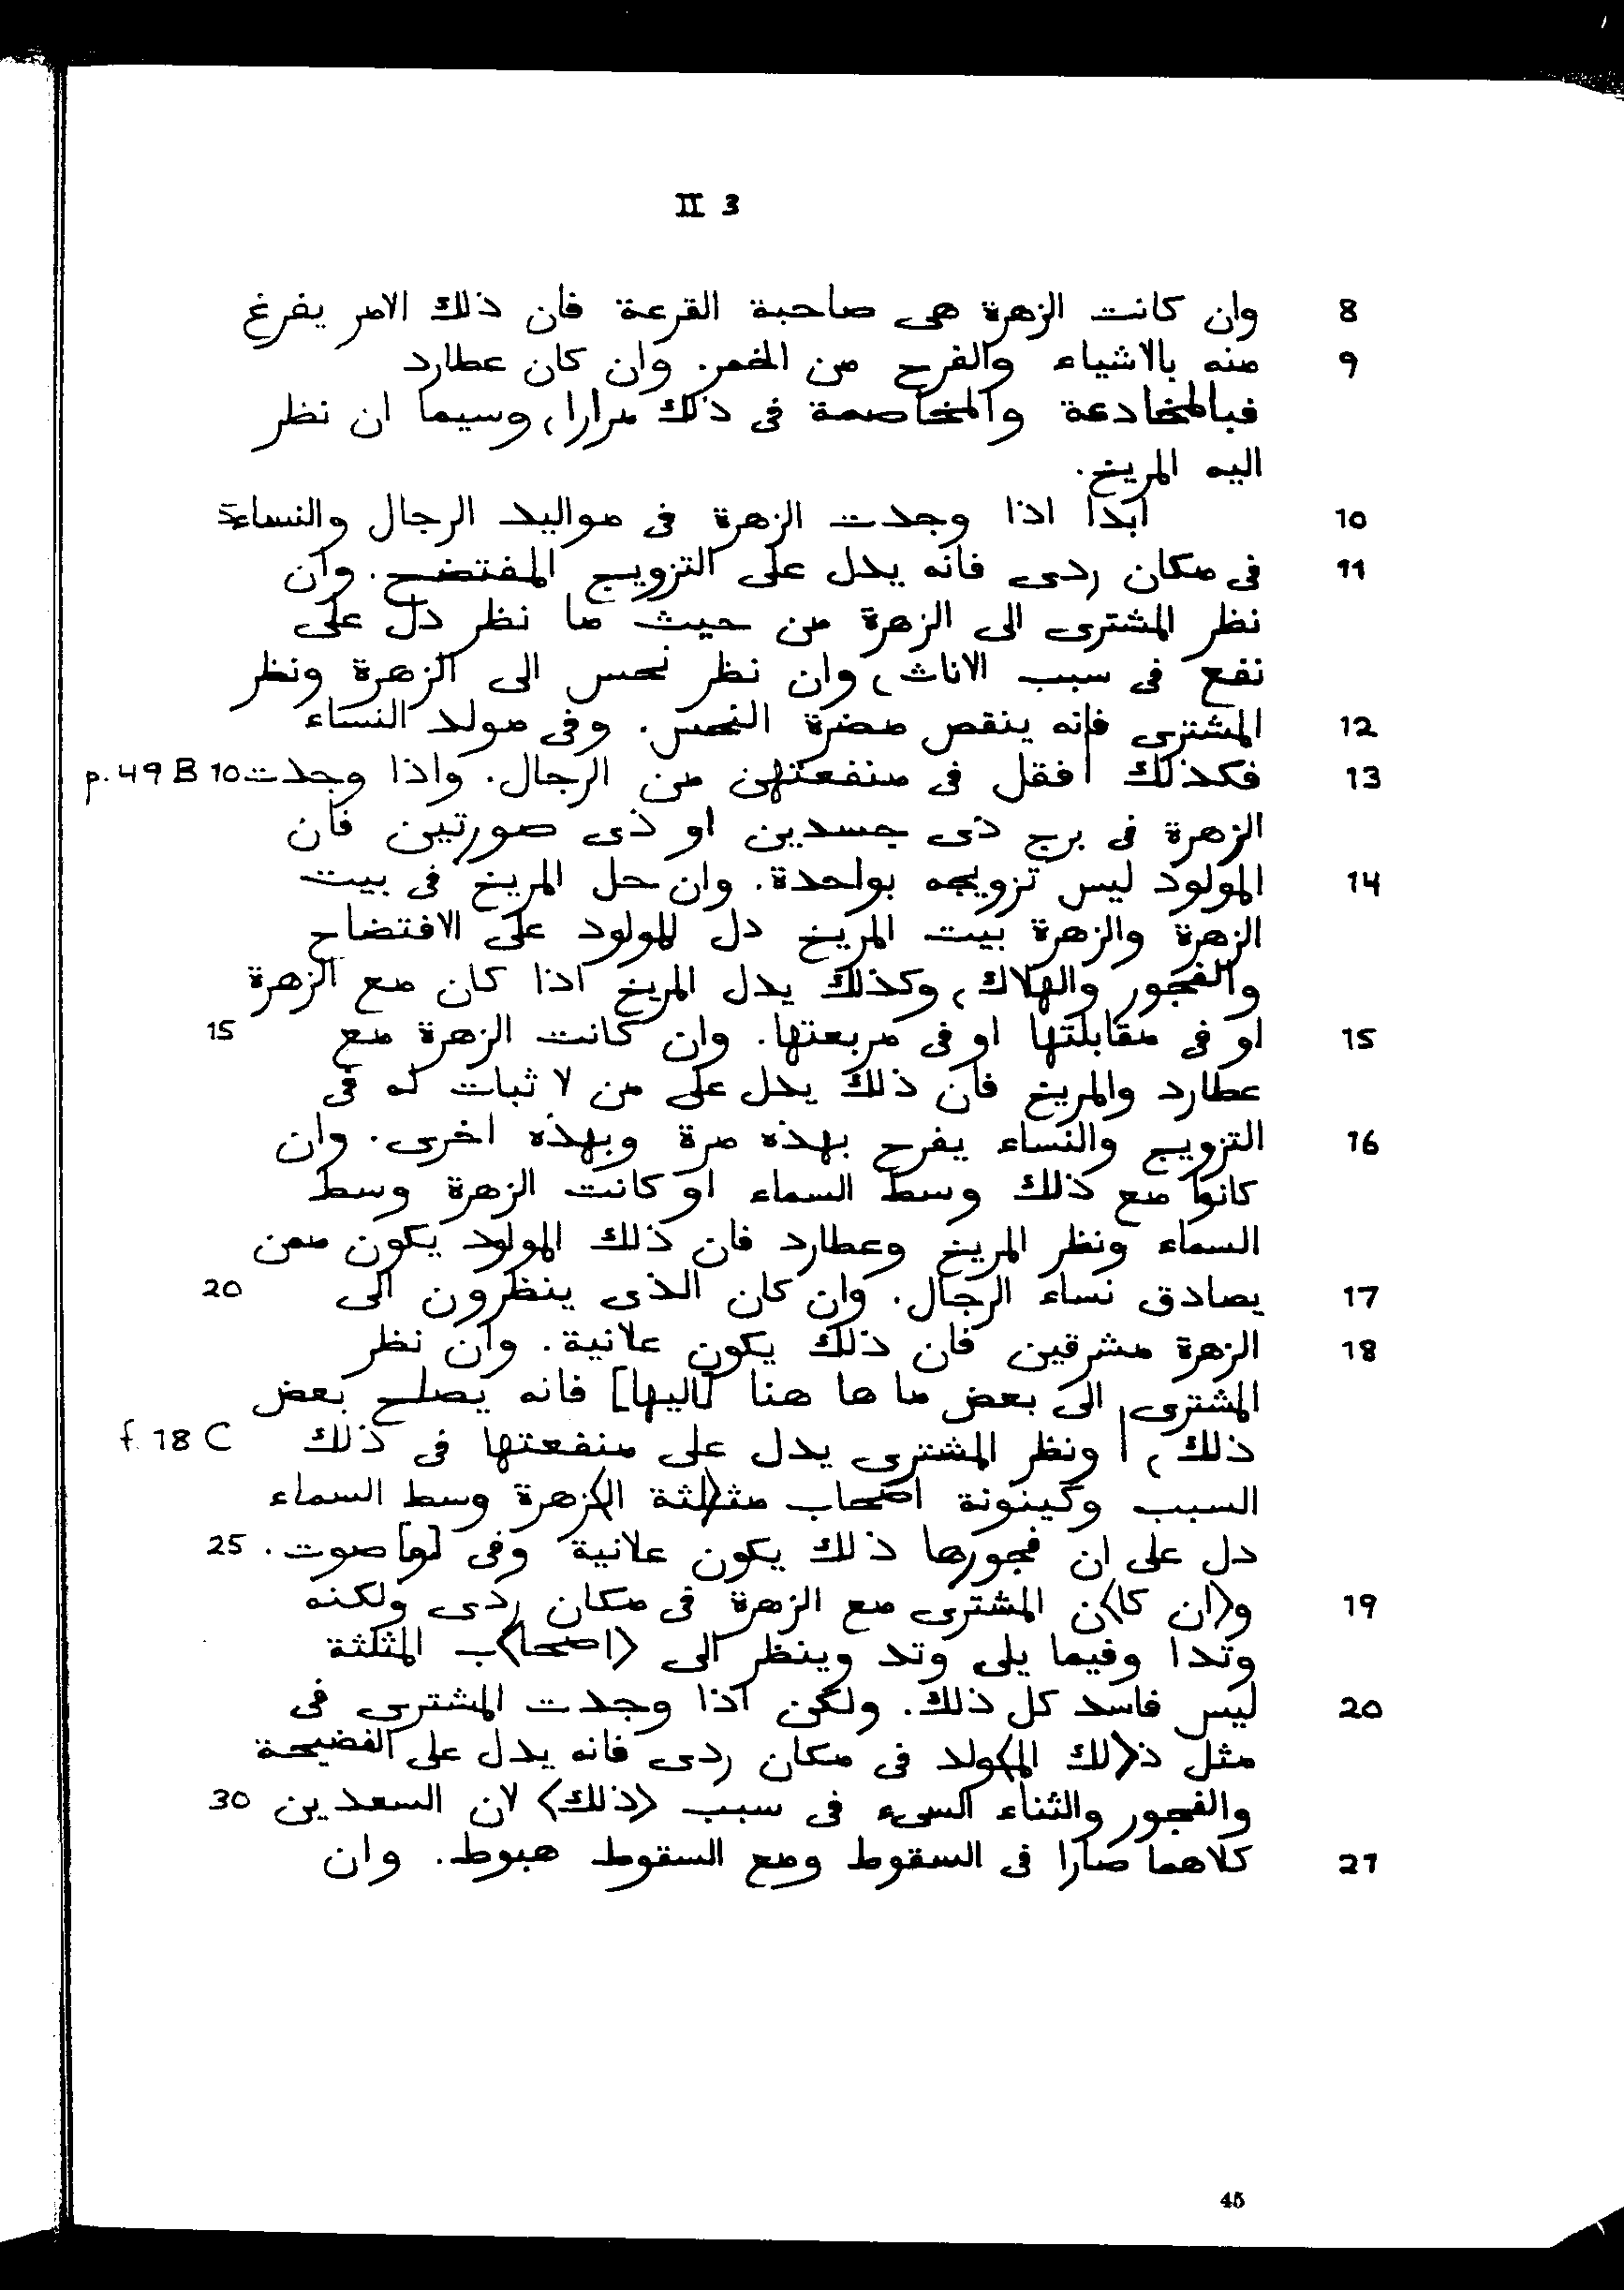 II 3
8 وان كانت الزهرة هى صاحبة القرعة فان ذلك الامر يفرغ
9 منه بالاشياء والفرح من الخمر. وان كان عطارد
فبالمخادعة والمخاصمة فى ذلك مرارا، وسيما ان نظر
اليه المريخ.
10 ابدا اذا وجدت الزهرة فى مواليد الرجال والنساء 5
11 فى مكان ردى فانه يدل على التزويج المفتضح. وان
نظر المشترى الى الزهرة من حيث ما نظر دل على
نفع فى سبب الاناث، وان نظر نحس الى الزهرة ونظر
12 المشترى فانه ينقص مضرة النحس. وفى مولد النساء
13 فكذلك | فقل فى منفعتهن من الرجال. واذا وجدت 10 p. 49 B
الزهرة فى برج ذى جسدين او ذى صورتين فان
14 المولود ليس تزويجه بواحدة. وان حل المريخ فى بيت
الزهرة والزهرة بيت المريخ دل للمولود على الافتضاح
والفجور والهلاك، وكذلك يدل المريخ اذا كان مع الزهرة
15 او فى مقابلتها او فى مربعتها. وان كانت الزهرة مع 15
عطارد والمريخ فان ذلك يدل على من لا ثبات له فى
16 التزويج والنساء يفرح بهذه مرة وبهذه اخرى. وان
كانوا مع ذلك وسط السماء او كانت الزهرة وسط
السماء ونظر المريخ وعطارد فان ذلك المولود يكون ممن
17 يصادق نساء الرجال. وان كان الذى ينظرون الى 20
18 الزهرة مشرقين فان ذلك يكون علانية. وان نظر
المشترى الى بعض ما ها هنا [اليها] فانه يصلح بعض
ذلك، | ونظر المشترى يدل على منفعتها فى ذلك f. 18 C
السبب وكينونة اصحاب مث<لثة ال>زهرة وسط السماء
دل على ان فجورها ذلك يكون علانية وفى [موا] صوت. 25
19 و<ان كا>ن المشترى مع الزهرة فى مكان ردى ولكنه
وتدا وفيما يلى وتد وينظر الى <اصحا>ب المثلثة
20 ليس فاسد كل ذلك. ولكن اذا وجدت المشترى فى
مثل ذ<لك الم>ولد فى مكان ردى فانه يدل على الفضيحة
والفجور والثناء السىء فى سبب <ذلك> لان السعدين 30
21 كلاهما صارا فى السقوط ومع السقوط هبوط. وان
45